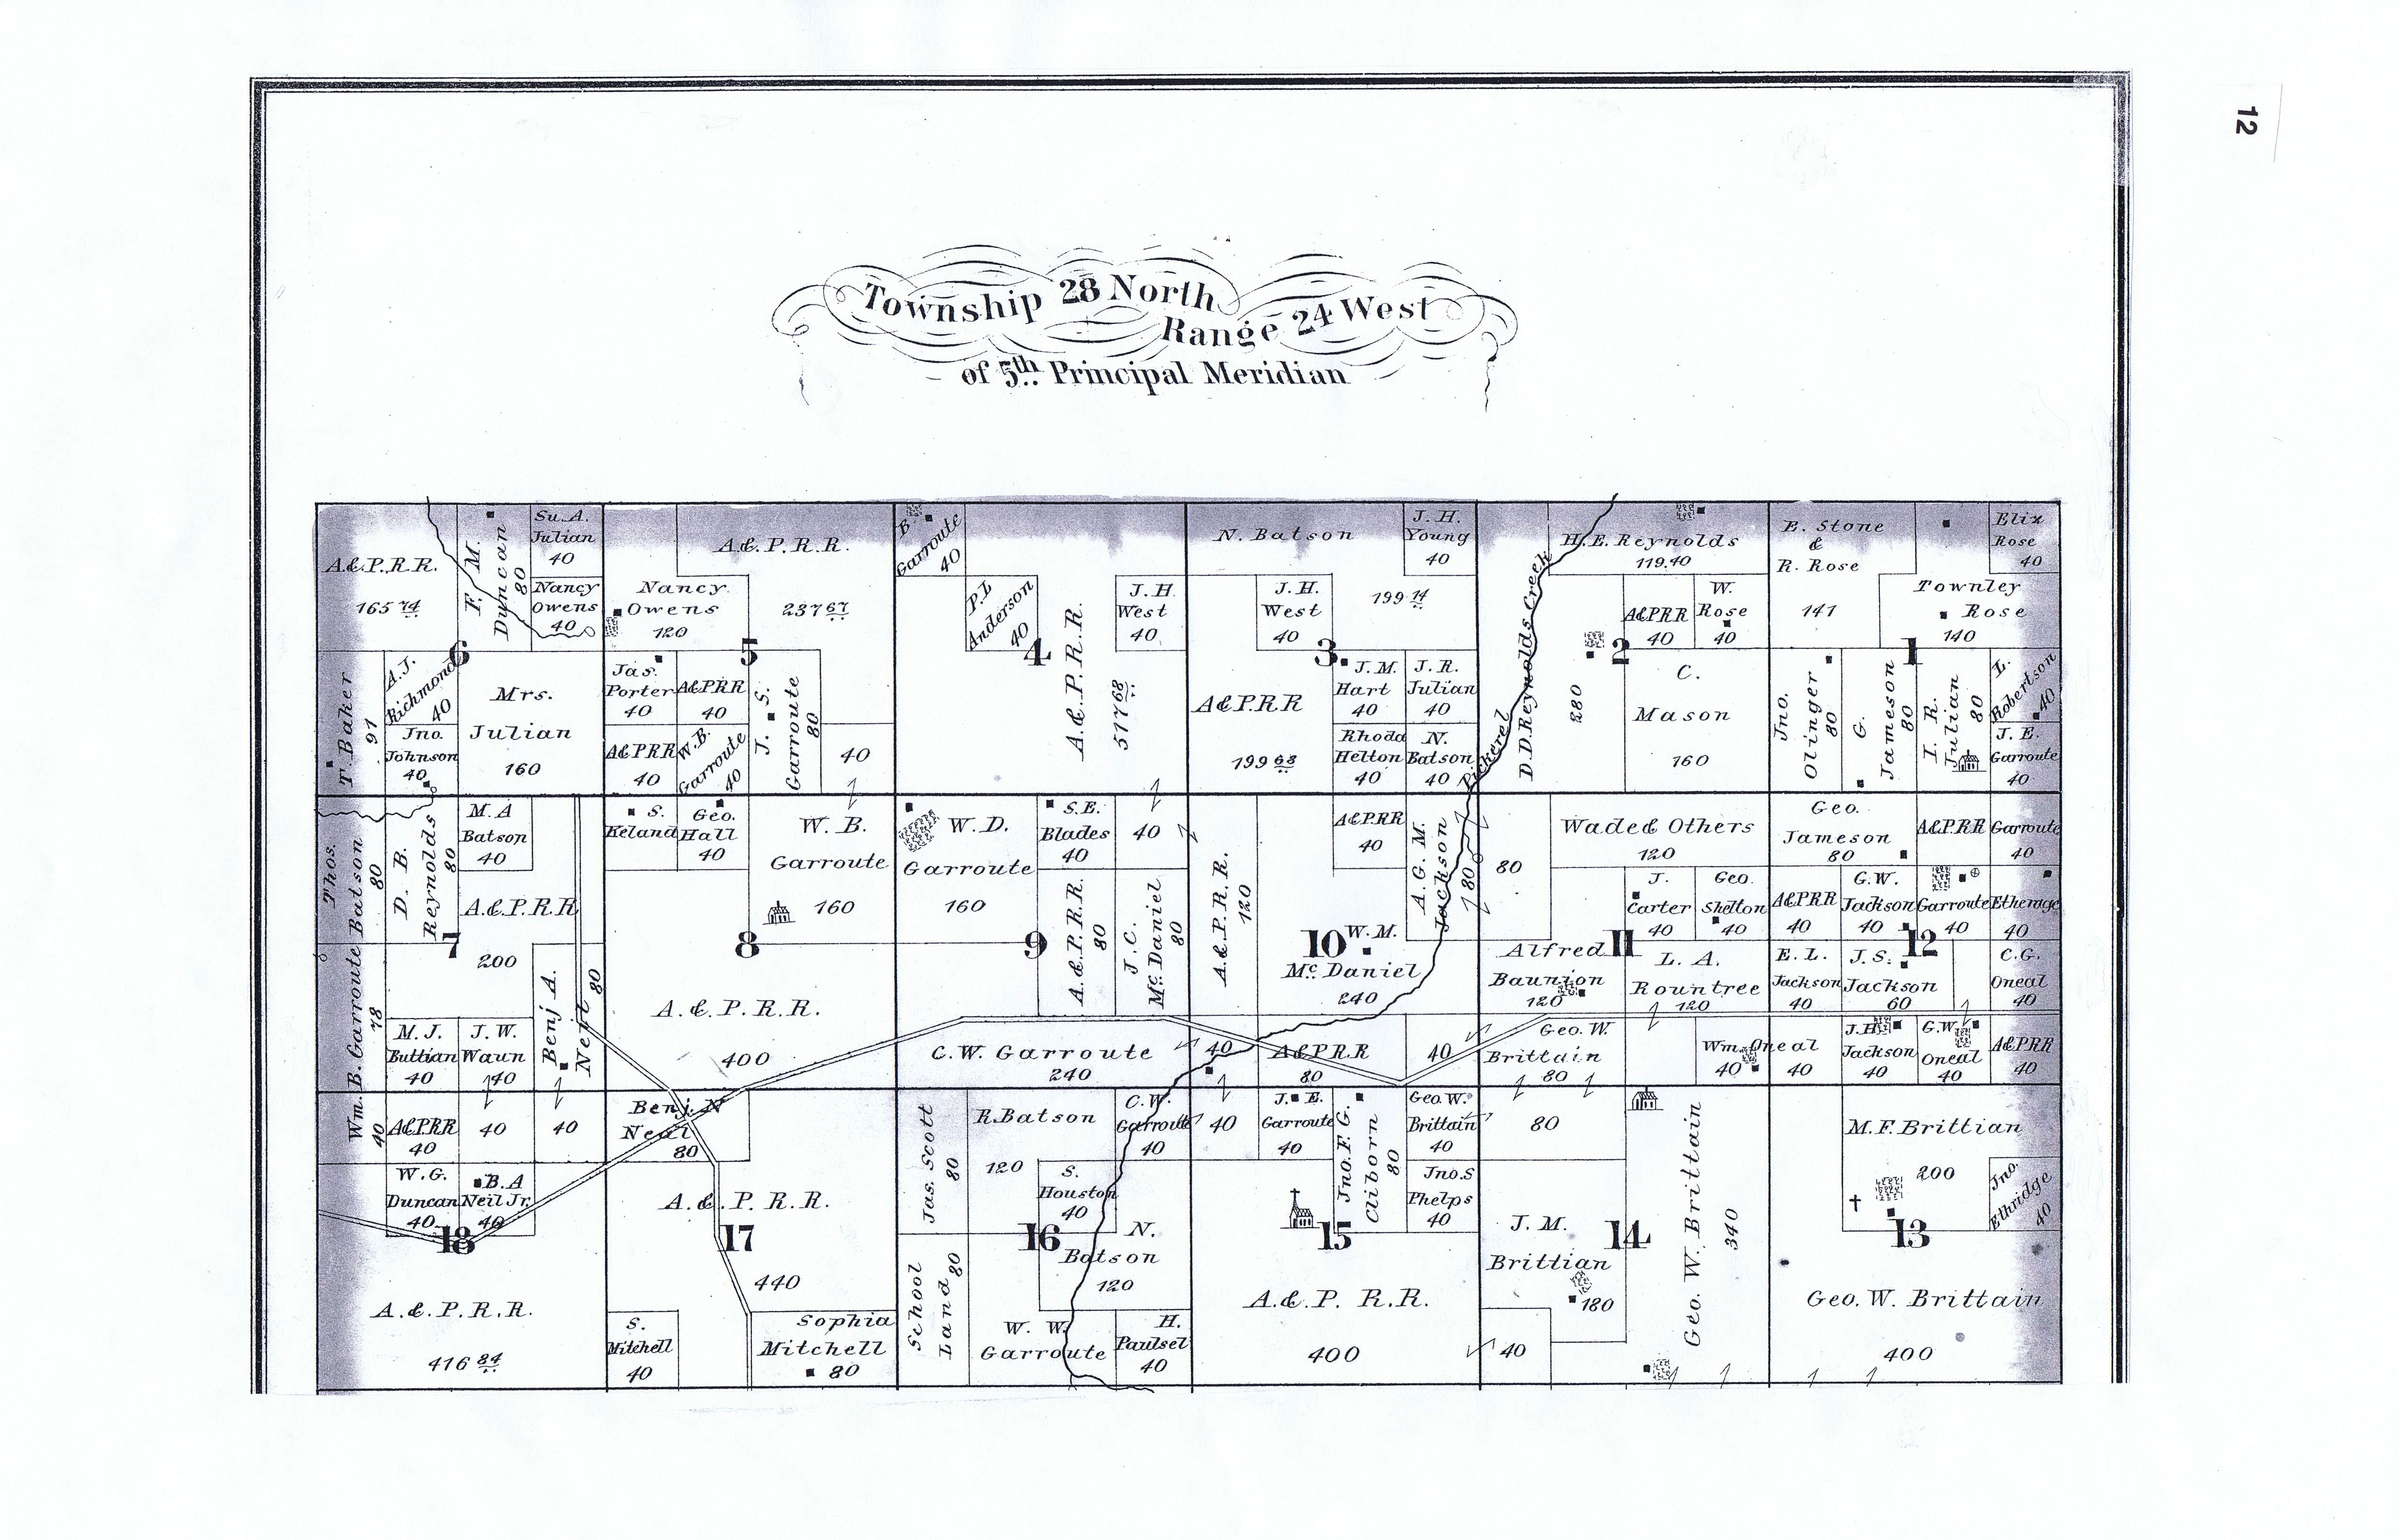 12
Township 28 North
Range 24 West
of 5th Principal Meridian
A.&P.R.R.
165 74
F. M.
Duncan
80
Su. A.
Julian
40
Nancy
Owens
40
6
T. Baker
91
A.J.
Richmond
40
Jno.
Johnson
40
Mrs.
Julian
160
A.&P.R.R.
237 67
Nancy
Owens
120
5
Jas.
Porter
40
A&PRR
40
A&PRR
40
W.B.
Garroute
40
J. S.
Garroute
80
40
B.
Garroute
40
P.L
Anderson
40
4
A.&P.R.R.
517 68
J.H.
West
40
N. Batson
199 14
J.H.
Young
40
J.H.
West
40
3
A&P.RR
199 68
J.M.
Hart
40
J.R.
Julian
40
Rhoda
Helton
40
N.
Batson
40
Pickerel
Creek
D.D.Reynolds
280
H.E.Reynolds
119.40
A&PRR
40
W.
Rose
40
2
C.
Mason
160
E. Stone
&
R. Rose
141
Eliz
Rose
40
Townley
Rose
140
1
Jno.
Olinger
80
G.
Jameson
80
I. R.
Julian
80
L.
Robertson
40
J.E.
Garroute
40
Thos.
Batson
80
D. B.
Reynolds
80
M.A
Batson
40
A.&P.R.R.
200
7
Wm. B. Garroute
78
40
M.J.
Buttian
40
J.W.
Waun
40
Benj A.
Neil
80
S.
Keland
Geo.
Hall
40
W. B.
Garroute
160
8
A.&.P.R.R.
400
W. D.
Garroute
160
S.E.
Blades
40
40
9
A.&P.R.R.
80
J.C.
McDaniel
80
C.W. Garroute
240
A.&P.R.R.
120
A&PRR
40
A.G.M.
Jackson
80
10
W.M.
McDaniel
240
40
A&P.RR
80
40
80
Wade& Others
120
J.
Carter
40
Geo.
Shelton
40
11
Alfred
Baunion
120
L. A.
Rountree
120
Geo. W.
Brittain
80
Wm. Oneal
40
40
Geo.
Jameson
80
A&P.RR
Garroute
40
A&PRR
40
G.W.
Jackson
40
Garroute
40
Etherage
40
12
E.L.
Jackson
40
J.S.
Jackson
60
C.G.
Oneal
40
J.H
Jackson
40
G.W.
Oneal
40
A&PRR
40
A&PRR
40
40
40
W.G.
Duncan
40
B.A
Neil Jr.
40
18
A.&.P.R.R.
416 84
Benj. N
Neal
80
A.&.P.R.R.
17
440
S.
Mitchell
40
Sophia
Mitchell
80
Jas. Scott
80
R.Batson
120
C.W.
Garroute
40
S.
Houston
40
16
N.
Batson
120
School
Land
80
W. W.
Garroute
H.
Paulsel
40
40
J. E.
Garroute
40
Jno. F. G.
Cliborn
80
Geo.W.
Brittain
40
Jno.S
Phelps
40
15
A.&.P. R.R.
400
80
J. M.
Brittian
180
14
40
Geo. W. Brittain
340
M.F.Brittian
200
Jno.
Ethridge
40
13
Geo. W. Brittain
400